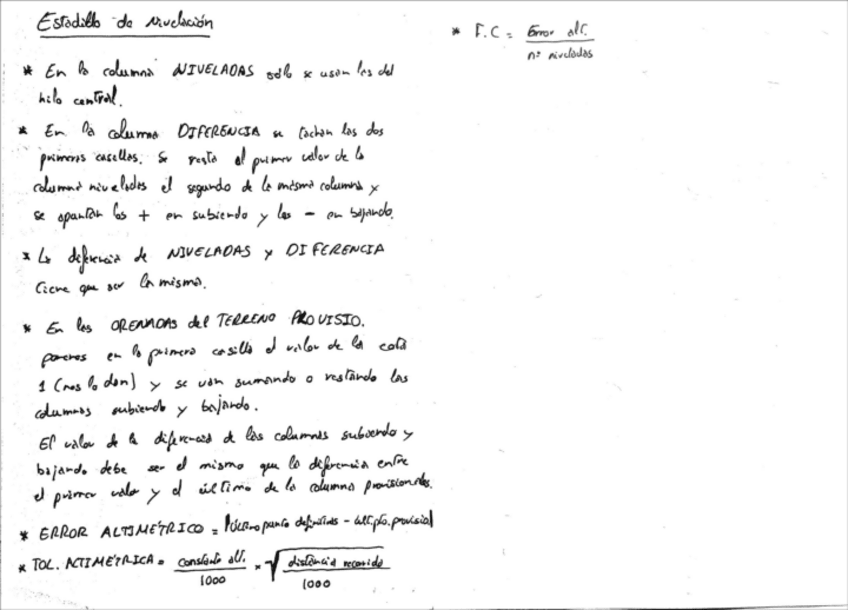 Estadillo de Nivelación
* En la columna NIVELADAS sólo se usan las del
hilo central.
* En la columna DIFERENCIA se tachan las dos
primeras casillas. Se resta al primer valor de la
columna niveladas el segundo de la misma columna y
se apuntan los + en subiendo y los - en bajando.
* La diferencia de NIVELADAS y DIFERENCIA
tiene que ser la misma.
* En las ORENADAS del TERRENO PROVISIO.
ponemos en la primera casilla el valor de la cota
1 (nos lo dan) y se van sumando o restando las
columnas subiendo y bajando.
El valor de la diferencia de las columnas subiendo y
bajando debe ser el mismo que la diferencia entre
el primer valor y el último de la columna provisionales.
* ERROR ALTIMÉTRICO = |último punto definitivas - últ. pto. provisial
* TOL. ALTIMÉTRICA = constante alt. / 1000 * √ distancia recorrida / 1000
* F.C = Error alt. / nº niveladas